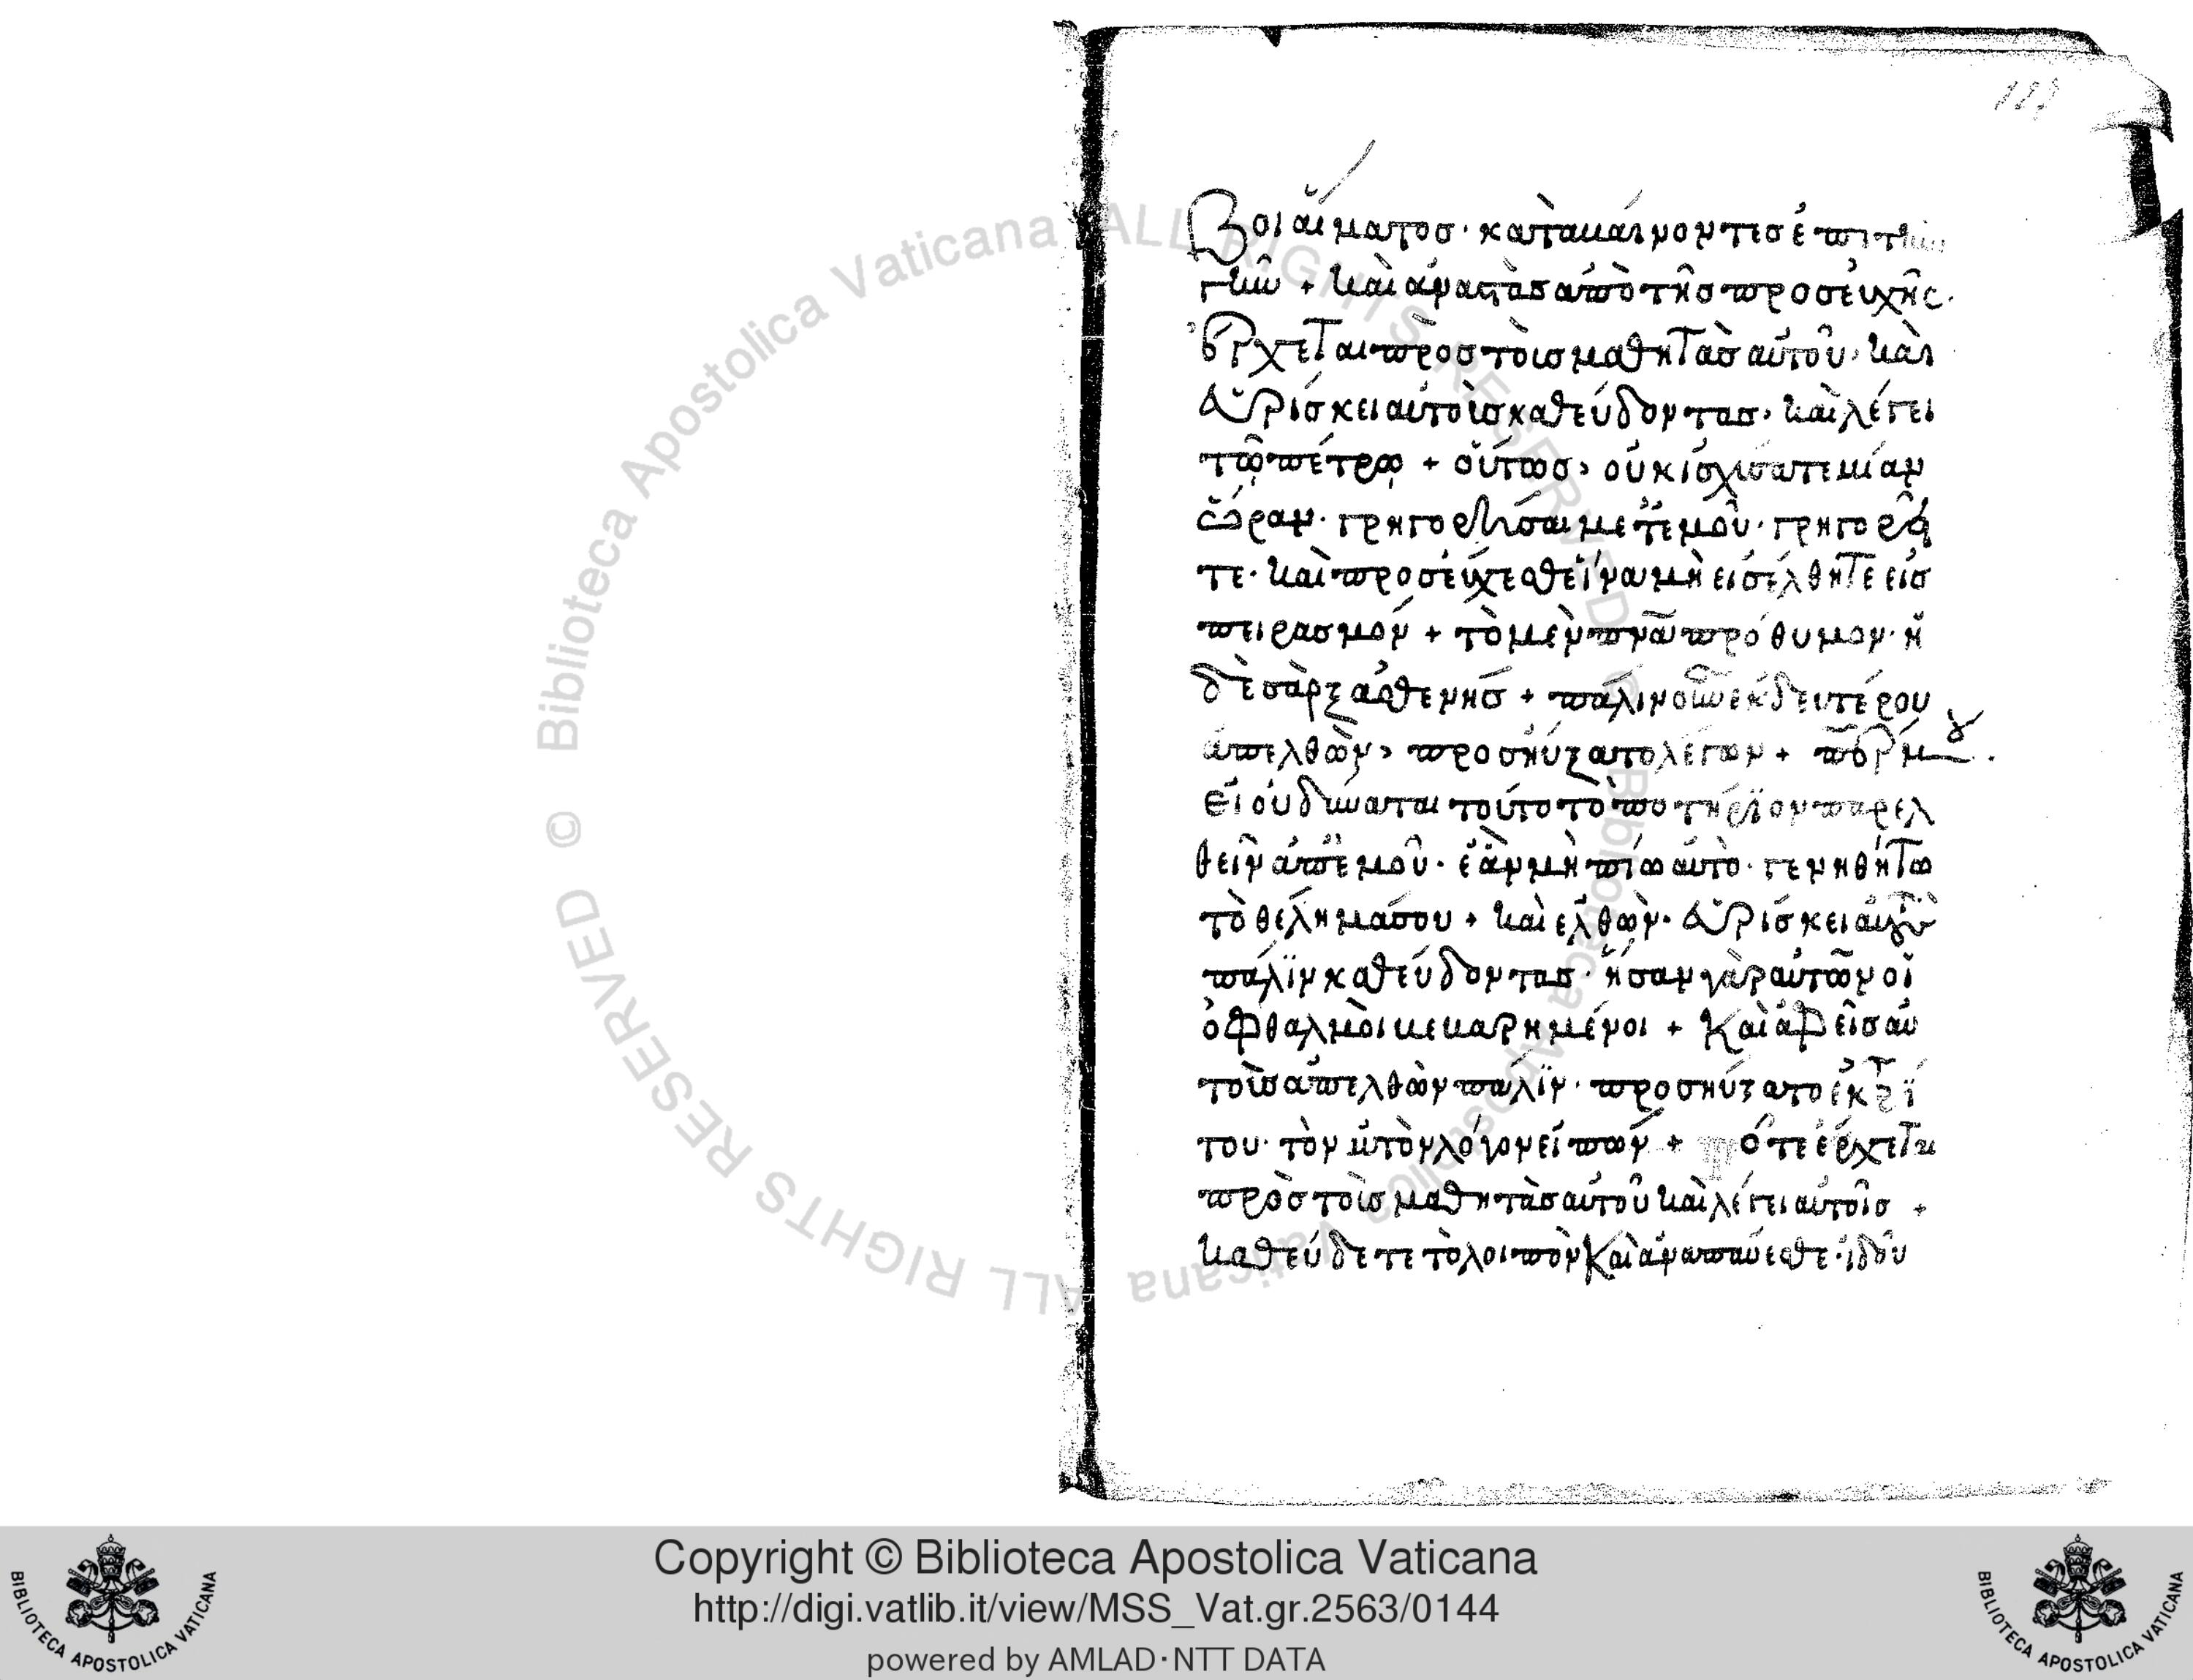 Βοι αἵματος· καταβαίνοντες ἐπὶ τὴν
γῆν + καὶ ἀναστὰς ἀπὸ τῆς προσευχῆς·
ἔρχεται πρὸς τοὺς μαθητὰς αὐτοῦ, καὶ
εὑρίσκει αὐτοὺς καθεύδοντας, καὶ λέγει
τῷ πέτρῳ + οὕτως, οὐκ ἰσχύσατε μίαν
ὥραν· γρηγορῆσαι μετ' ἐμοῦ· γρηγορεῖ
τε· καὶ προσεύχεσθε ἵνα μὴ εἰσέλθητε εἰς
πειρασμόν + τὸ μὲν πνᾶ πρόθυμον· ἡ
δὲ σὰρξ ἀσθενής + πάλιν οὖν ἐκ δευτέρου
ἀπελθὼν, προσηύξατο λέγων + περ μου·
εἰ οὐ δύναται τοῦτο τὸ ποτήριον παρελ
θεῖν ἀπ' ἐμοῦ· ἐὰν μὴ πίω αὐτὸ· γενηθήτω
τὸ θέλημα σου + καὶ ἐλθὼν· εὑρίσκει αὐτοὺς
πάλϊν καθεύδοντας· ἦσαν γὰρ αὐτῶν οἱ
ὀφθαλμοὶ βεβαρημένοι + Καὶ ἀφεὶς αὐ
τοὺς ἀπελθὼν πάλϊν· προσηύξατο ἐκ τρί
του· τὸν αὐτὸν λόγον εἰπών + τότε ἔρχεται
πρὸς τοὺς μαθητὰς αὐτοῦ καὶ λέγει αὐτοῖς +
καθεύδετε τὸ λοιπὸν Καὶ ἀναπαύεσθε· ἰδοὺ
© Biblioteca Apostolica Vaticana ALL RIGHTS RESERVED
Copyright © Biblioteca Apostolica Vaticana
http://digi.vatlib.it/view/MSS_Vat.gr.2563/0144
powered by AMLAD·NTT DATA
BIBLIOTECA APOSTOLICA VATICANA
BIBLIOTECA APOSTOLICA VATICANA